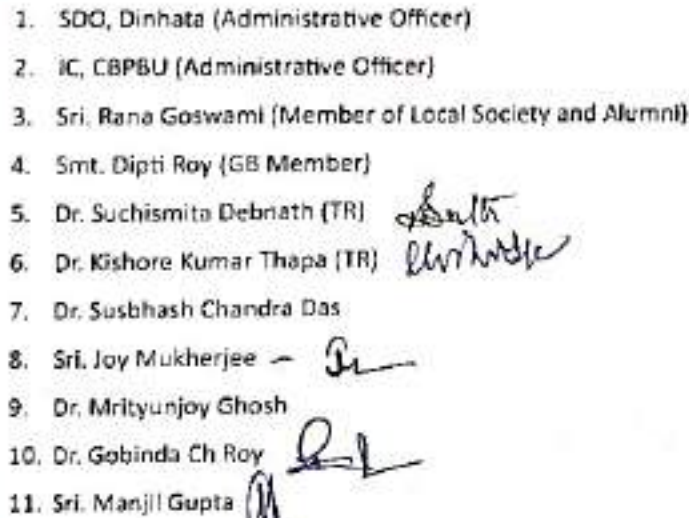 1. SDO, Dinhata (Administrative Officer)
2. IC, CBPBU (Administrative Officer)
3. Sri. Rana Goswami (Member of Local Society and Alumni)
4. Smt. Dipti Roy (GB Member)
5. Dr. Suchismita Debnath (TR)
6. Dr. Kishore Kumar Thapa (TR)
7. Dr. Susbhash Chandra Das
8. Sri. Joy Mukherjee –
9. Dr. Mrityunjoy Ghosh
10. Dr. Gobinda Ch Roy
11. Sri. Manjil Gupta